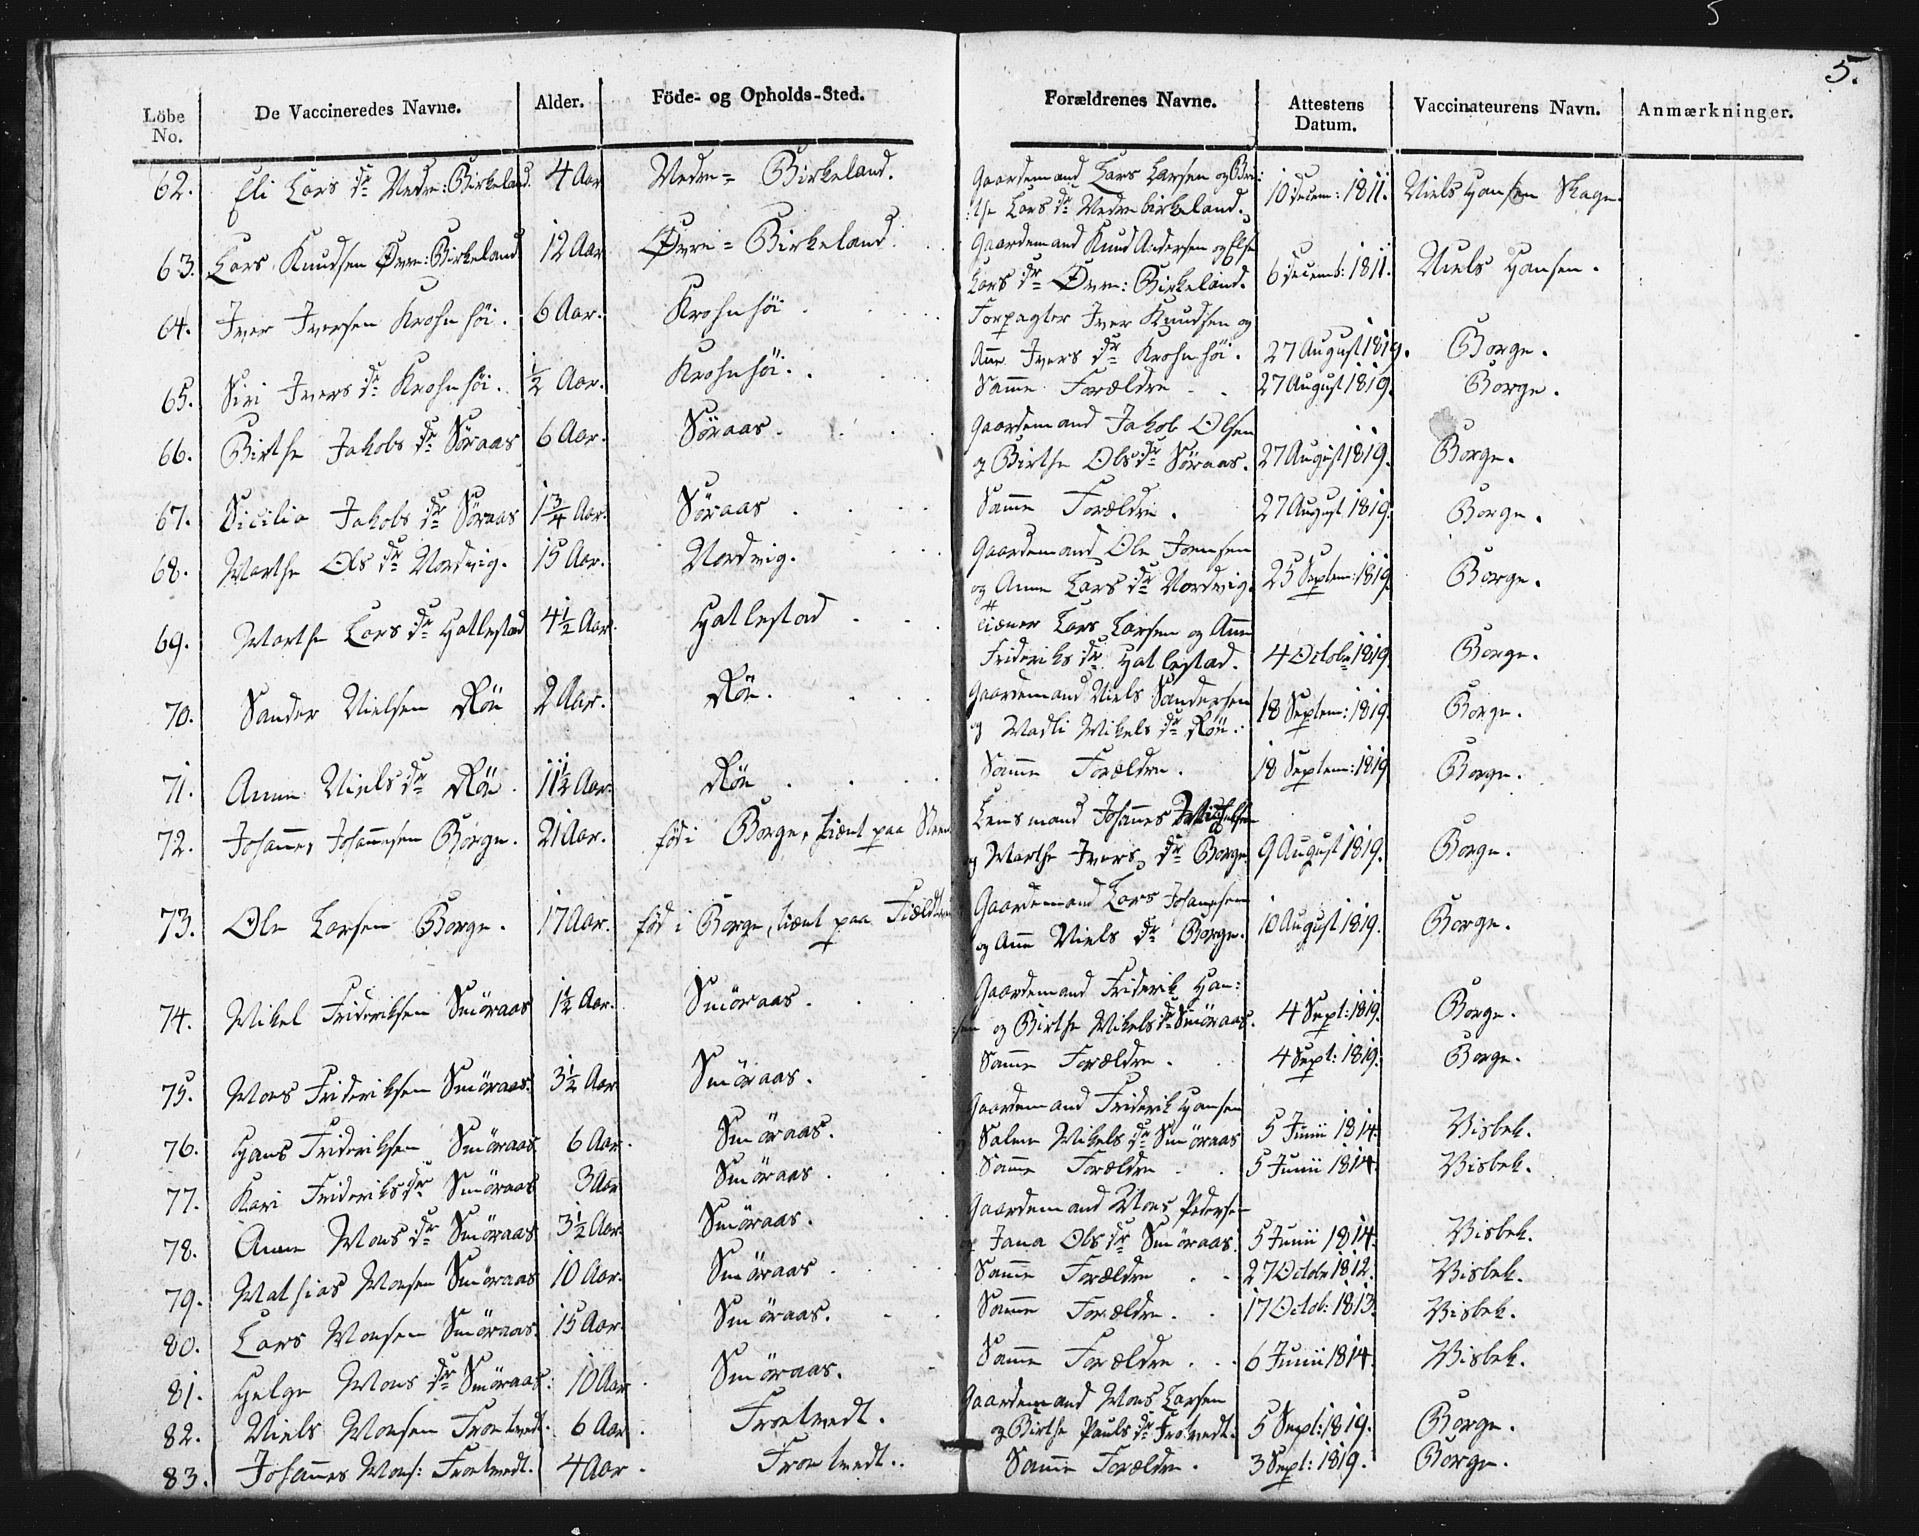 5
5.
Löbe No. De Vaccineredes Navne. Alder. Föde- og Opholds-Sted. Forældrenes Navne. Attestens Datum. Vaccinateurens Navn. Anmærkninger.
62. Eli Lars dr Nedre: Birkeland. 4 Aar Nedre = Birkeland. Gaardemand Lars Larsen og Bri: 10 decem: 1811. Niels Hansen Skage.
:the Lars dr Nedre birkeland.
63. Lars Knudsen Øvre: Birkeland 12 Aar Øvre = Birkeland. Gaardemand Knud Andersen og Else
Lars dr Øvre: Birkeland. 6 decemb: 1811. Niels Hansen.
64. Iver Iversen Krohnhöi. 6 Aar. Krohnhöi. Forpagter Iver Knudsen og
Ane Ivers dr Krohnhöi. 27 August 1819. Borge.
65. Siri Ivers dr Krohnhöi. ½ Aar. Krohnhöi. Samme Forældre 27 August 1819. Borge.
66. Birthe Jakobs dr Söraas 6 Aar. Söraas. Gaardemand Jakob Olsen
og Birthe Ols dr Söraas. 27 August 1819. Borge.
67. Sicilia Jakobs dr Söraas 1¾ Aar. Söraas Samme Forældre. 27 August 1819. Borge.
68. Marthe Ols dr Nordvig. 15 Aar. Nordvig. Gaardemand Ole Jonnsen
og Anne Lars dr Nordvig. 25 Septem: 1819. Borge.
69. Marthe Lars dr Hatlestad 4½ Aar. Hatlestad Tiæner Lars Larsen og Anne
Frideriks dr Hatlestad. 4 Octobr 1819 Borge.
70. Sander Nielsen Röe 2 Aar. Röe. Gaardemand Niels Sandersen 18 Septem: 1819. Borge.
og Madli Mikels dr Röe.
71. Anne Niels dr Röe. 11½ Aar. Röe Samme Forældre. 18 Septem: 1819 Borge.
72. Johannes Johannesen Borge. 21 Aar. föd i Borge, tiænt paa Steen Lensmand Johannes
og Marthe Ivers dr Borge 9 August 1819. Borge.
73. Ole Larsen Borge. 17 Aar. föd i Borge, tiænt paa Gaardemand Lars Johannesen
og Anne Niels dr Borge. 10 August 1819. Borge.
74. Mikel Frideriksen Smöraas 1½ Aar. Smöraas. Gaardemand Friderik Han:
:sen og Birthe Mikels dr Smöraas. 4 Sept: 1819. Borge.
75. Mons Frideriksen Smöraas. 3½ Aar Smöraas. Samme Forældre. 4 Sept: 1819. Borge.
76. Hans Frideriksen Smöraas 6 Aar. Smöraas. Gaardemand Friderik Hansen
og Salme Mikels dr Smöraas 5 Junii 1814. Visbek.
77. Kari Frideriks dr Smöraas 3 Aar Smöraas. Samme Forældre 5 Junii 1814. Visbek.
78. Anne Mons dr Smöraas 3½ Aar. Smöraas. Gaardemand Mons Pedersen
og Jana Ols dr Smöraas. 5 Junii 1814. Visbek.
79. Mathias Monsen Smöraas 10 Aar. Smöraas. Samme Forældre 27 Octobr 1812. Visbek.
80. Lars Monsen Smöraas. 15 Aar. Smöraas. Samme Forældre. 17 Octob: 1813. Visbek.
81. Helge Mons dr Smöraas: 10 Aar Smöraas. Samme Forældre. 6 Junii 1814. Visbek.
82. Niels Monsen Frotvedt. 6 Aar. Frotvedt. Gaardemand Mons Larsen
og Birthe Pauls dr Frotvedt. 5 Sept: 1819. Borge.
83. Johannes Mons: Frotvedt. 4 Aar. Frotvedt. Samme Forældre. 3 Sept: 1819. Borge.